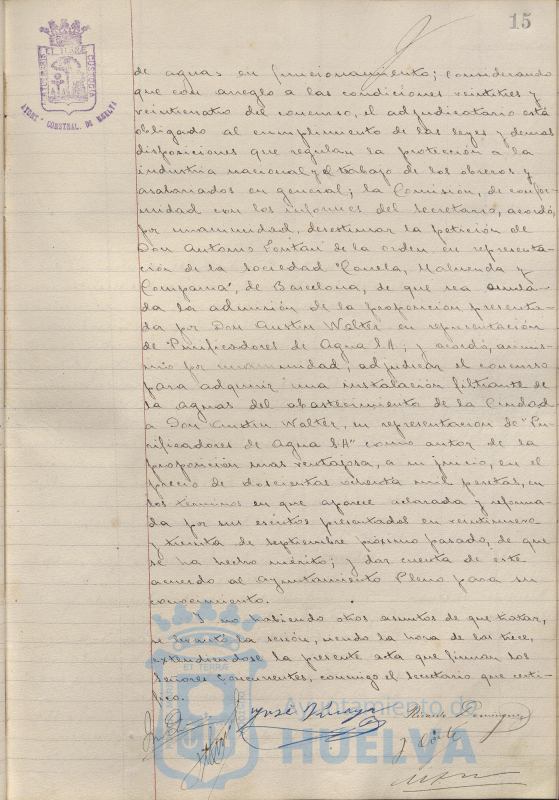 15
PORTUS MARIS ET TERRÆ CUSTODIA
AYUNT. CONSTNAL. DE HUELVA
de aguas en funcionamiento; considerando
que con arreglo a las condiciones veintitres y
veinticuatro del concurso, el adjudicatario está
obligado al cumplimiento de las leyes y demas
disposiciones que regulan la protección a la
industria nacional y el trabajo de los obreros y
asalariados en general; la Comisión, de confor-
midad con los informes del Secretario, acordó,
por unanimidad, desestimar la petición de
Don Antonio de la orden, en representa-
ción de la Sociedad "Canela, Maluenda y
Compañia", de Barcelona, de que sea anula-
da la admisión de la proposición presenta-
da por Don Austin Walter en representación
de "Purificadores de Agua S.A", y acordó, asimis-
mo por unanimidad, adjudicar el concurso
para adquirir una instalación filtrante de
las aguas del abastecimiento de la Ciudad
a Don Austin Walter, en representación de "Pu-
rificadores de Agua S.A" como autor de la
proposición mas ventajosa, a su juicio, en el
precio de doscientas ochenta mil pesetas, en
los terminos en que aparece aclarada y reforma-
da por sus escritos presentados en veintinueve
y treinta de septiembre próximo pasado, de que
se ha hecho mérito; y dar cuenta de este
acuerdo al Ayuntamiento Pleno para su
conocimiento.
Y no habiendo otros asuntos de que tratar,
se levantó la sesión, siendo la hora de las trece,
extendiendose la presente acta que firman los
Señores concurrentes, conmigo el Secretario que certi-
fico.
José
Ricardo Dominguez
Ayuntamiento de
HUELVA